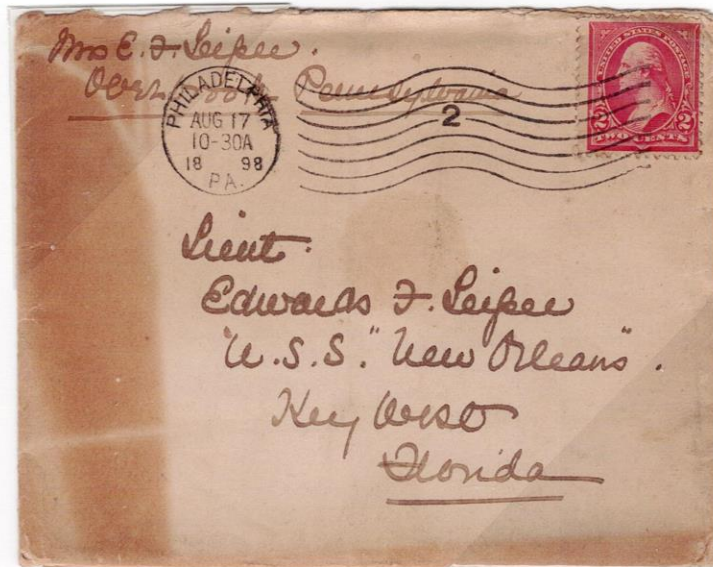 Mrs E. F. Leiper.
Overbrook Pennsylvania
PHILADELPHIA
AUG 17
10-30A
18 98
PA.
2
UNITED STATES POSTAGE
2 2
TWO CENTS
Lieut.
Edwards F. Leiper
"U.S.S." New Orleans".
Key West
Florida